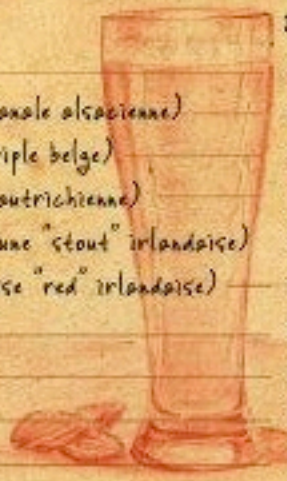 anale alsacienne)
iple belge)
autrichienne)
une "stout" irlandaise)
se "red" irlandaise)